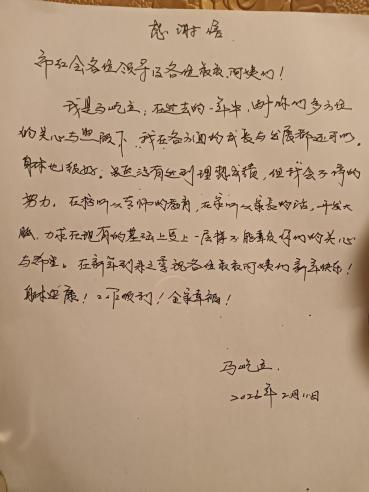 感谢信
市红会各位领导及各位叔叔、阿姨们！
我是马屹立，在过去的一年中，由于你们多方位
的关心与照顾下，我在各方面的成长与发展都还可以。
身体也很好。虽然没有达到理想成绩，但我会不停的
努力。在校听从老师的教育，在家听从家长的话，开发大
脑，力求在现有的基础上更上一层楼不能辜负你们的关心
与希望。在新年到来之季祝各位叔叔阿姨们新年快乐！
身体安康！工作顺利！全家幸福！
马屹立
2026年2月11日